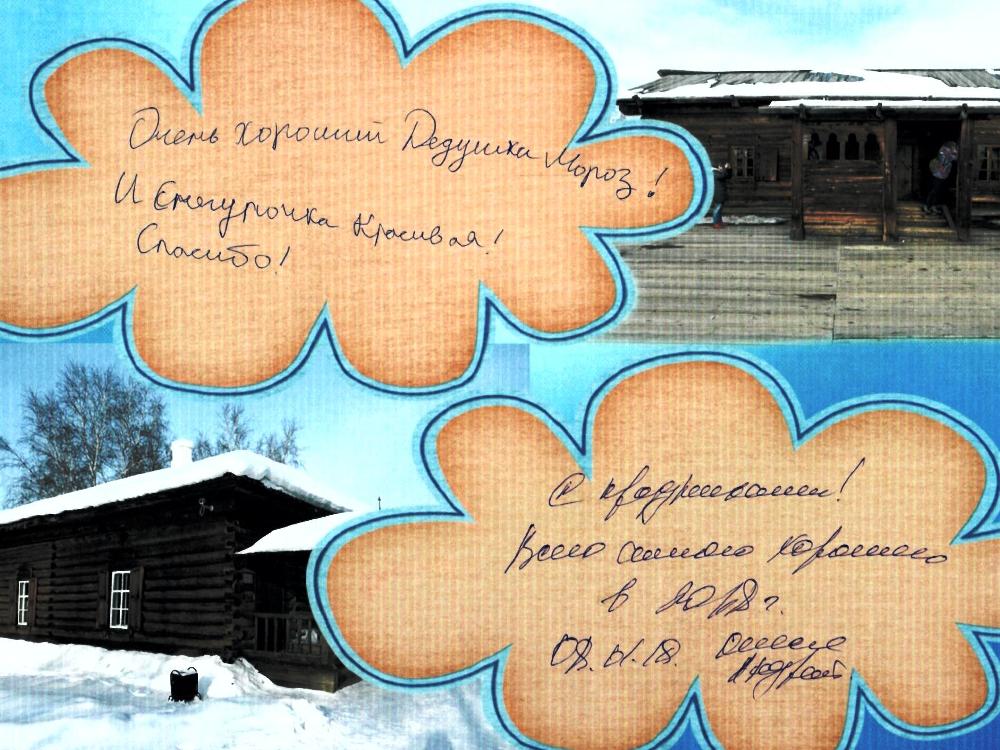 Очень хороший Дедушка Мороз!
И Снегурочка Красивая!
Спасибо!
С праздниками!
Всего самого хорошего
в 2018 г.
08.01.18.
Андрей